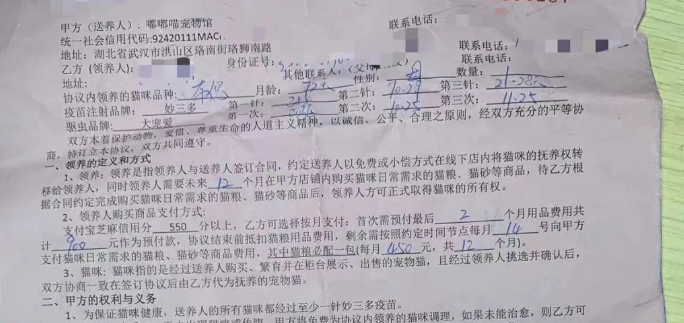 甲方（送养人）：嘟嘟喵宠物馆
联系电话：
统一社会信用代码:92420111MAC
地址：湖北省武汉市洪山区珞南街珞狮南路
联系电话：
乙方（领养人）：
身份证号：
其他联系人：
联系电话：
地址：
协议内领养的猫咪品种：
月龄：
性别：
数量：1
疫苗注射品牌：妙三多
第一针：
第二针：
第三针：
驱虫品牌：大宠爱
第一次：
第二次：10.25
第三次：11.25
双方本着保护动物，爱惜、尊重生命的人道主义精神，以诚信、公平、合理之原则，经双方充分的平等协
商，特订立本协议，双方共同遵守。
一、领养的定义和方式
1、领养：领养是指领养人与送养人签订合同，约定送养人以免费或小偿方式在线下店内将猫咪的抚养权转
移给领养人，同时领养人需要未来 12 个月在甲方店铺内购买猫咪日常需求的猫粮、猫砂等商品，待乙方根
据合同约定完成购买猫咪日常需求的猫粮、猫砂等商品后，领养人方可正式取得猫咪的所有权。
2、领养人购买商品支付方式：
支付宝芝麻信用分 550 分以上，乙方可选择按月支付：首次需预付最后 2 个月用品费用共
计 900 元作为预付款，协议结束前抵扣猫粮用品费用，剩余需按照约定时间节点每月 14 号向甲方
支付猫咪日常需求的猫粮、猫砂等商品费用，其中猫粮必配一包（每月 450 元，共 12 个月）。
3、猫咪：猫咪指的是经过送养人购买、繁育并在柜台展示、出售的宠物猫，且经过领养人挑选并确认后，
双方协商一致在签订协议后由乙方代为抚养的宠物猫。
二、甲方的权利与义务
1、为保证猫咪健康，送养人的所有猫咪都经过至少一针妙三多疫苗。
甲方将免费为协议内领养的猫咪调理，如果未能治愈，则乙方可